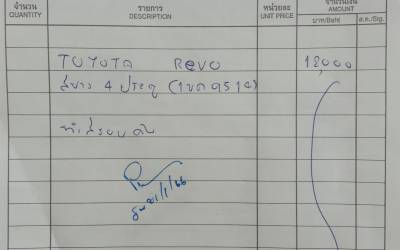 จำนวน รายการ หน่วยละ จำนวนเงิน
QUANTITY DESCRIPTION UNIT PRICE AMOUNT
บาท/Baht ส.ต./Stg.
TOYOTA REVO 18,000
สีขาว 4 ประตู (1ขต 9514)
ทำสีรอบคัน
21/1/66